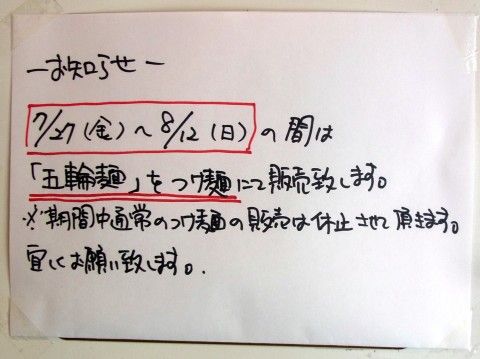 ーお知らせー
7/27(金)〜8/12(日)の間は
「五輪麺」をつけ麺にて販売致します。
※期間中通常のつけ麺の販売は休止させて頂きます。
宜しくお願い致します。